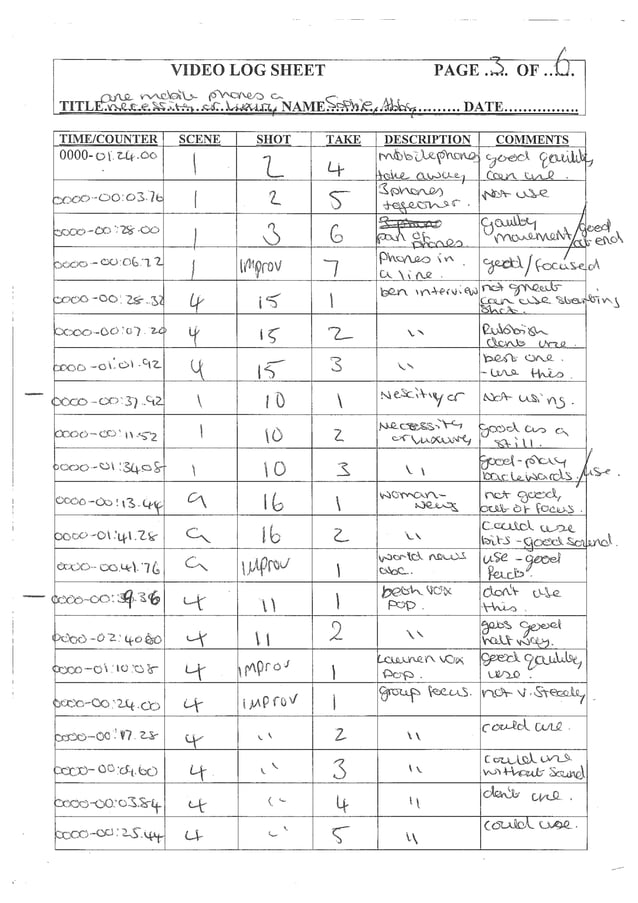 VIDEO LOG SHEET PAGE ..3.. OF ..6..
are mobile phones a
TITLE necessity or luxury NAME Sophie, Abby .......... DATE...............
TIME/COUNTER SCENE SHOT TAKE DESCRIPTION COMMENTS
0000-01.24.00 1 2 4 mobile phones take away good quality can use.
0000-00:03.76 1 2 5 3 phones together. Not use
0000-00:28.00 1 3 6 pan of phones movement/good at end
0000-00:06.72 1 improv 7 Phones in a line. good/focused
0000-00:28.32 4 15 1 ben interview not great can use starting shot.
0000-00:07.20 4 15 2 " Rubbish dont use.
0000-01:01.92 4 15 3 " best one. - use this.
0000-00:37.92 1 10 1 Nescitiy or Not using.
0000-00:11.52 1 10 2 necessity or luxury good as a still.
0000-01:34.08 1 10 3 " good-play backwards/use.
0000-00:13.44 9 16 1 woman-news not good, out of focus.
0000-01:41.28 9 16 2 " could use bits - good sound.
0000-00:41.76 9 improv 1 world news abc. use - good
0000-00:39.36 4 11 1 vox pop. don't use this.
0000-02:40.80 4 11 2 " gets good half way.
0000-01:10:08 4 improv 1 vox pop. good quality, use.
0000-00:24.00 4 improv 1 group focus. not v. steady
0000-00:17.28 4 " 2 " could use.
0000-00:09.60 4 " 3 " could use without sound
0000-00:03.84 4 " 4 " don't use.
0000-00:25.44 4 " 5 " could use.